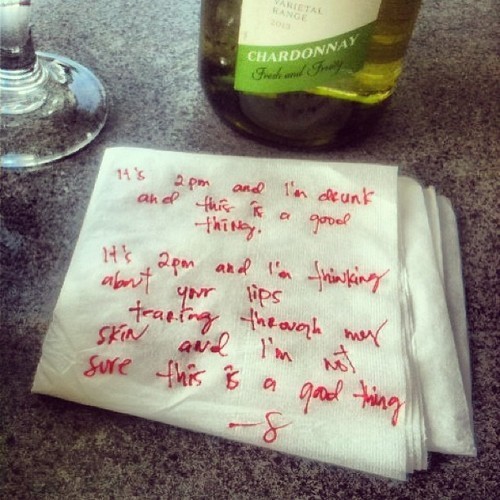 VARIETAL
RANGE
2013
CHARDONNAY
Fresh and Fruity
It's 2pm and I'm drunk
and this is a good
thing.
It's 2pm and I'm thinking
about your lips
tearing through my
skin and I'm not
sure this is a good thing
—S